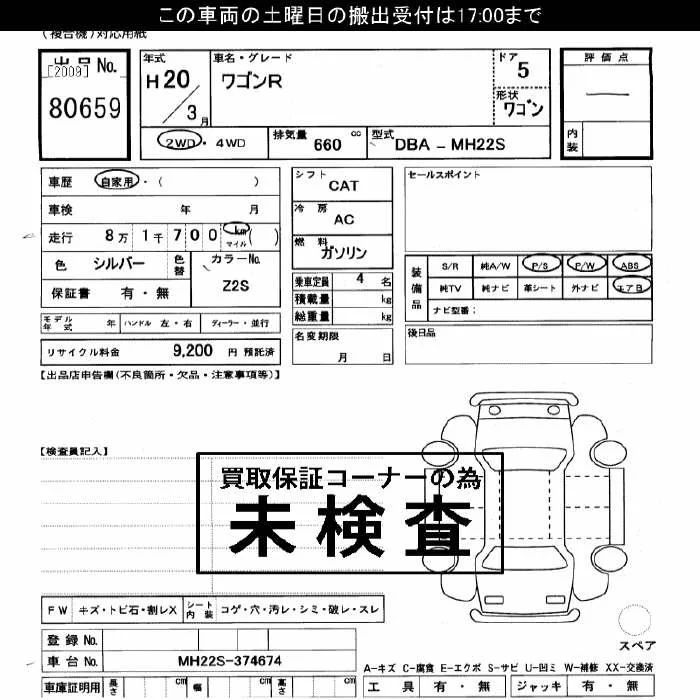 この車両の土曜日の搬出受付は17:00まで
(複合機)対応用紙
出品 No.
[2009]
80659
年式
H20
/3月
車名・グレード
ワゴンR
ドア
5
形状
ワゴン
評価点
—
内装
2WD・4WD
排気量 660 cc
型式 DBA － MH22S
車歴 自家用・( )
車検 年 月
走行 8万 1千 700 km マイル ( )
色 シルバー 色替
カラーNo.
Z2S
保証書 有・無
シフト
CAT
冷房
AC
燃料
ガソリン
乗車定員 4 名
積載量 kg
総重量 kg
セールスポイント
装備品
S/R 純A/W P/S P/W ABS
純TV 純ナビ 革シート 外ナビ エアB
ナビ型番:
モデル年式 年 ハンドル 左・右 ディーラー・並行
リサイクル料金 9,200 円 預託済
名変期限
月 日
後日品
【出品店申告欄(不良箇所・欠品・注意事項等)】
【検査員記入】
買取保証コーナーの為
未検査
FW キズ・トビ石・割レX シート内装 コゲ・穴・汚レ・シミ・破レ・スレ
登録 No.
車台 No. MH22S-374674
スペア
A-キズ C-腐食 E-エクボ S-サビ U-凹ミ W-補修 XX-交換済
車庫証明用 長さ cm 幅 cm 高さ cm
工具 有・無 ジャッキ 有・無